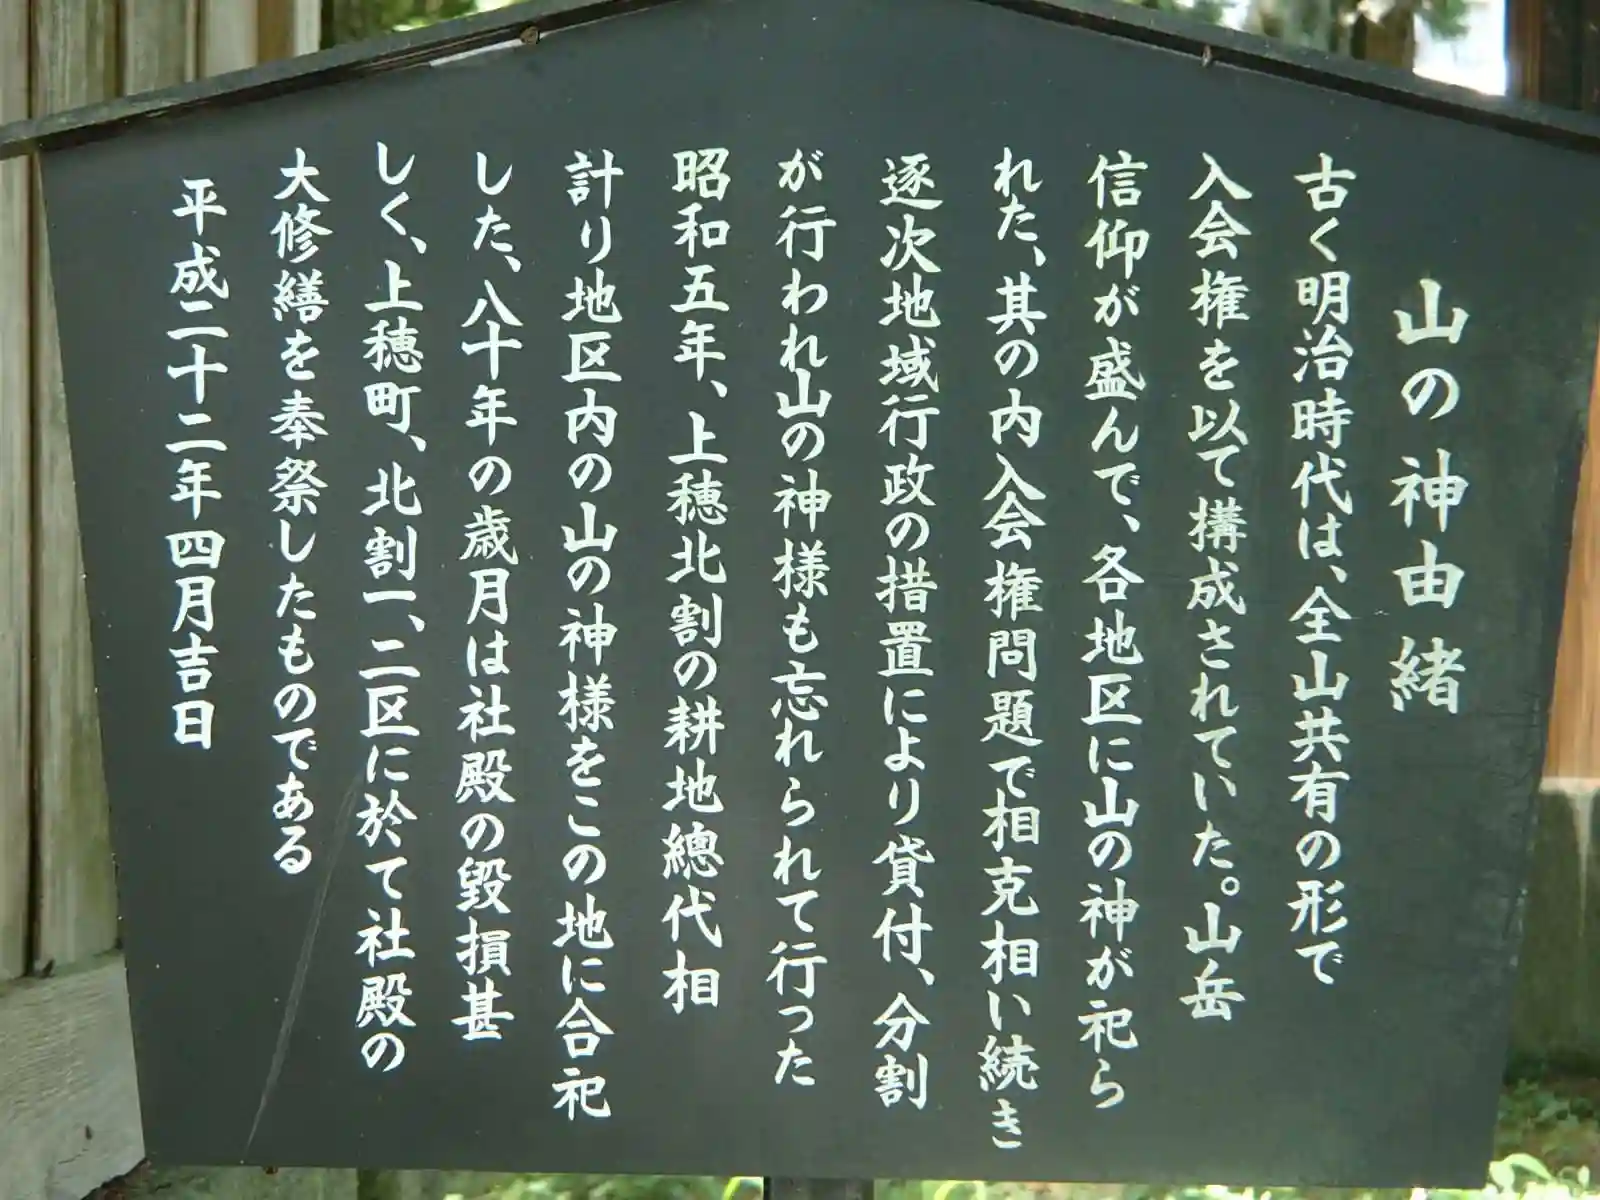 山の神由緒
古く明治時代は、全山共有の形で
入会権を以て構成されていた。山岳
信仰が盛んで、各地区に山の神が祀ら
れた、其の内入会権問題で相克相い続き
逐次地域行政の措置により貸付、分割
が行われ山の神様も忘れられて行った
昭和五年、上穂北割の耕地總代相
計り地区内の山の神様をこの地に合祀
した、八十年の歳月は社殿の毀損甚
しく、上穂町、北割一、二区に於て社殿の
大修繕を奉祭したものである
平成二十二年四月吉日